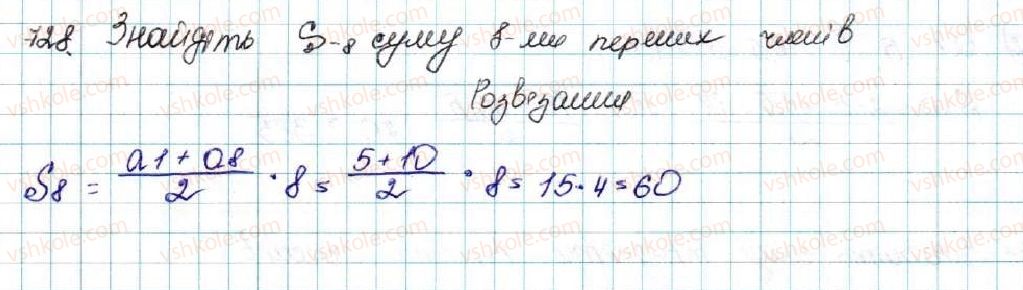 728. Знайдіть S-8 суму 8-ми перших членів
Розвязання
S8 = a1 + a8 / 2 · 8 = 5 + 10 / 2 · 8 = 15 · 4 = 60